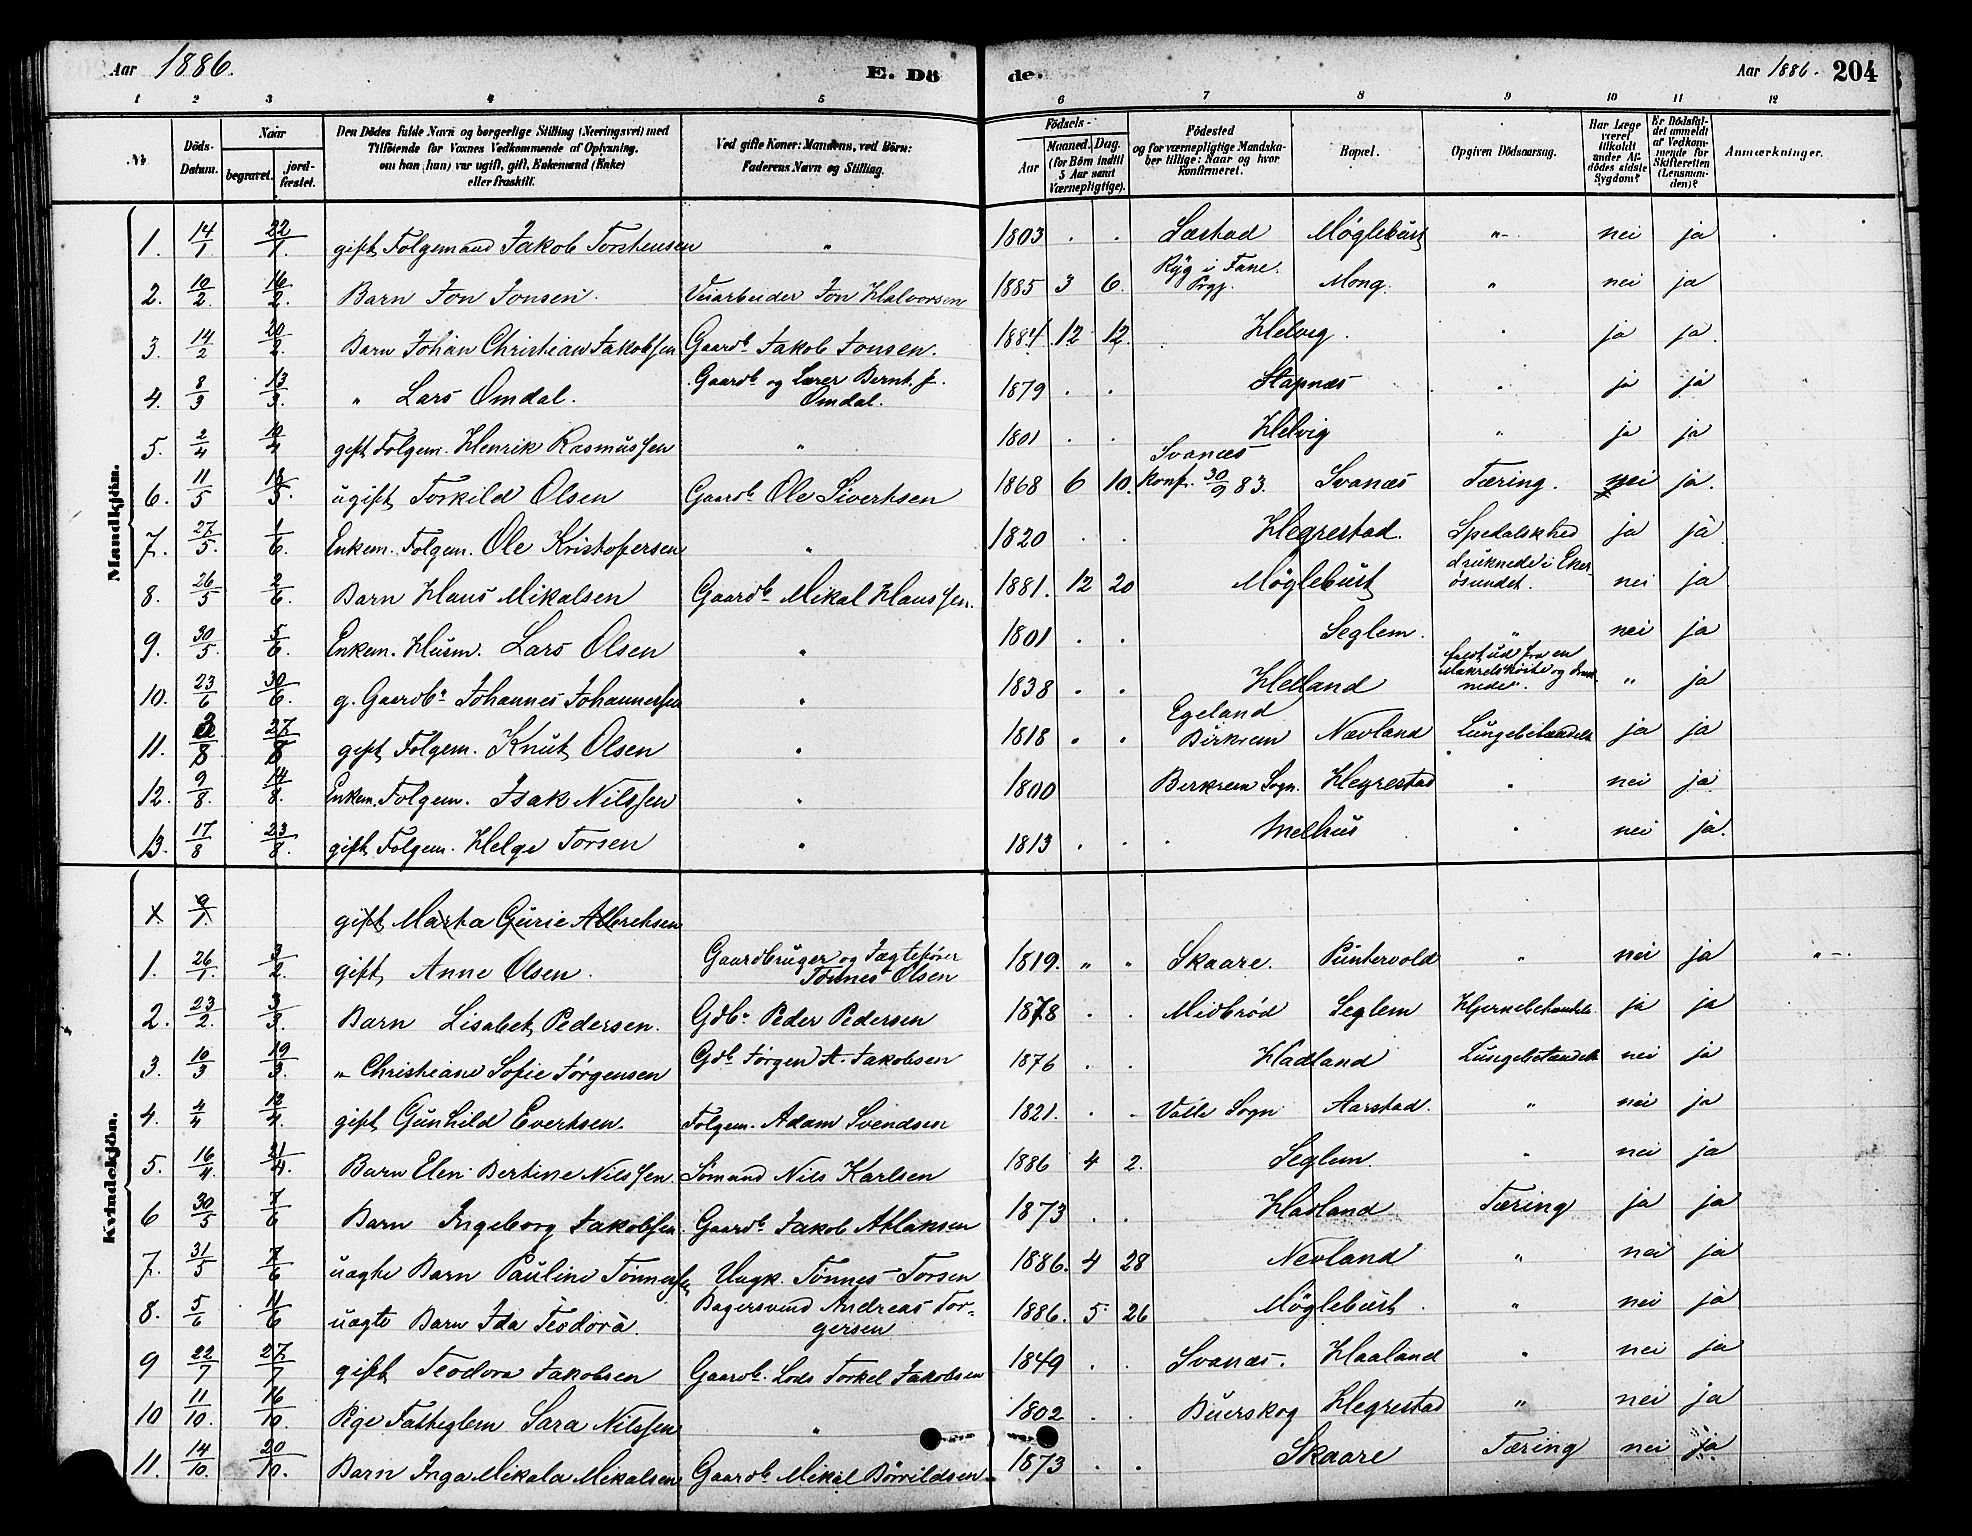 Aar 1886. E. Dö de. Aar 1886. 204
1 2 3 4 5 6 7 8 9 10 11 12
№ Döds-Datum. Naar begravet. jordfæstet. Den Dödes fulde Navn og borgerlige Stilling (Næringsvei) med Tilföiende for Voxnes Vedkommende af Oplysning, om han (hun) var ugift, gift, Enkemand (Enke) eller fraskilt. Ved gifte Koner: Mandens, ved Börn: Faderens Navn og Stilling. Födsels- Aar Maaned. Dag. (for Börn indtil 5 Aar samt Værnepligtige). Födested og for værnepligtige Mandskaber tillige: Naar og hvor konfirmeret. Bopæl. Opgiven Dödsaarsag. Har Læge været tilkaldt under Afdödes sidste Sygdom? Er Dödsfaldet anmeldt af Vedkommende for Skifteretten (Lensmanden)? Anmærkninger.
Mandkjön.
1. 14/1 22/1. gift Folgemand Jakob Torstensen „ 1803 . . Sæstad Møglebust „ nei ja
2. 10/2 16/2. Barn Jon Jonsen. Veiarbeider Jon Halvorsen 1885 3 6. Ryg i Fane Prgj. Mong. „ nei ja
3. 14/2 20/2. Barn Johan Christian Jakobsen Gaardb. Jakob Jonsen. 1884 12 12. Helvig. „ ja ja.
4. 8/3 13/3. „ Lars Omdal. Gaardb. og Lærer Bernt J. Omdal. 1879 . . Stapnæs „ ja ja
5. 2/4 10/4 gift Folgem. Henrik Rasmussen „ 1801 . . Helvig „ ja ja
6. 11/5 18/5. ugift Torkild Olsen Gaardb. Ole Sivertsen 1868 6 10. Svanæs Konf. 30/9 83. Svanæs Tæring. nei ja.
7. 27/5. 1/6. Enkem. Folgem. Ole Kristofersen „ 1820 . . Hegrestad. Spedalskhed ja ja
8. 26/5 2/6. Barn Hans Mikalsen Gaardb. Mikal Hanssen. 1881. 12 20 Møglebust druknede i Ekersundet. nei ja
9. 30/5 5/6 Enkem. Husm. Lars Olsen „ 1801 . . Seglem. „ nei ja
10. 23/6 30/6. g. Gaardbr. Johannes Johannessen „ 1838 . . Hetland faldt ud fra en Makrelskøite og druknede. „ ja
11. 2/8 27/8 gift Folgem. Knut Olsen „ 1818 . . Egeland Birkrem Nævland Lungebetændelse ja ja
12. 9/8. 14/8. Enkem. Folgem. Isak Nilssen „ 1800 Birkrem Sogn. Hegrestad „ nei ja
13. 17/8 23/8. gift Folgem. Helge Torsen „ 1813 . . Melhus „ nei ja.
Kvindekjön.
X. 9/1. gift Marta Gurie Albretsen
1. 26/1. 3/2. gift Anne Olsen. Gaardbruger og Jægtefører Tønnes Olsen 1819. „ „ Skaare. Puntervold „ nei ja „ -.
2. 23/2. 3/3. Barn Lisabet Pedersen. Gdbr. Peder Pedersen 1878 . . Midbrød Seglem Hjernebetændelse ja ja
3. 10/3 19/3. „ Christiane Sofie Jørgensen Gdb. Jørgen A. Jakobsen 1876 . . Hadland Lungebetændelse nei ja
4. 4/4 12/4. gift Gunhild Evertsen. Folgem. Adam Svendsen 1821. . . Valle Sogn Aarstad. „ nei ja
5. 16/4 21/4. Barn Elen Bertine Nilssen Sømand Nils Karlsen 1886 4 2. Seglem. „ nei ja
6 30/5 7/6 Barn Ingeborg Jakobsen Gaardb. Jakob Atlaksen 1873 . . Hadland Tæring ja ja
7. 31/5 7/6 uægte Barn Pauline Tønnessen Ungk. Tønnes Torsen 1886. 4 28 Nevland „ nei ja
8. 5/6 11/6 uægte Barn Ida Teodora. Bagersvend Andreas Torgersen 1886. 5 26 Møglebust. „ nei ja
9 22/7 27/7 gift Teodora Jakobsen Gaardb. Lods Torkel Jakobsen 1849 . . Svanæs. Haaland „ nei ja
10 11/10. 16/10. Pige Fattiglem Sara Nilssen „ 1802 . . Buerskog Hegrestad „ nei ja
11. 14/10. 20/10. Barn Inga Mikala Mikalsen Gaardb. Mikal Børrildsen 1873 . . Skaare Tæring nei ja